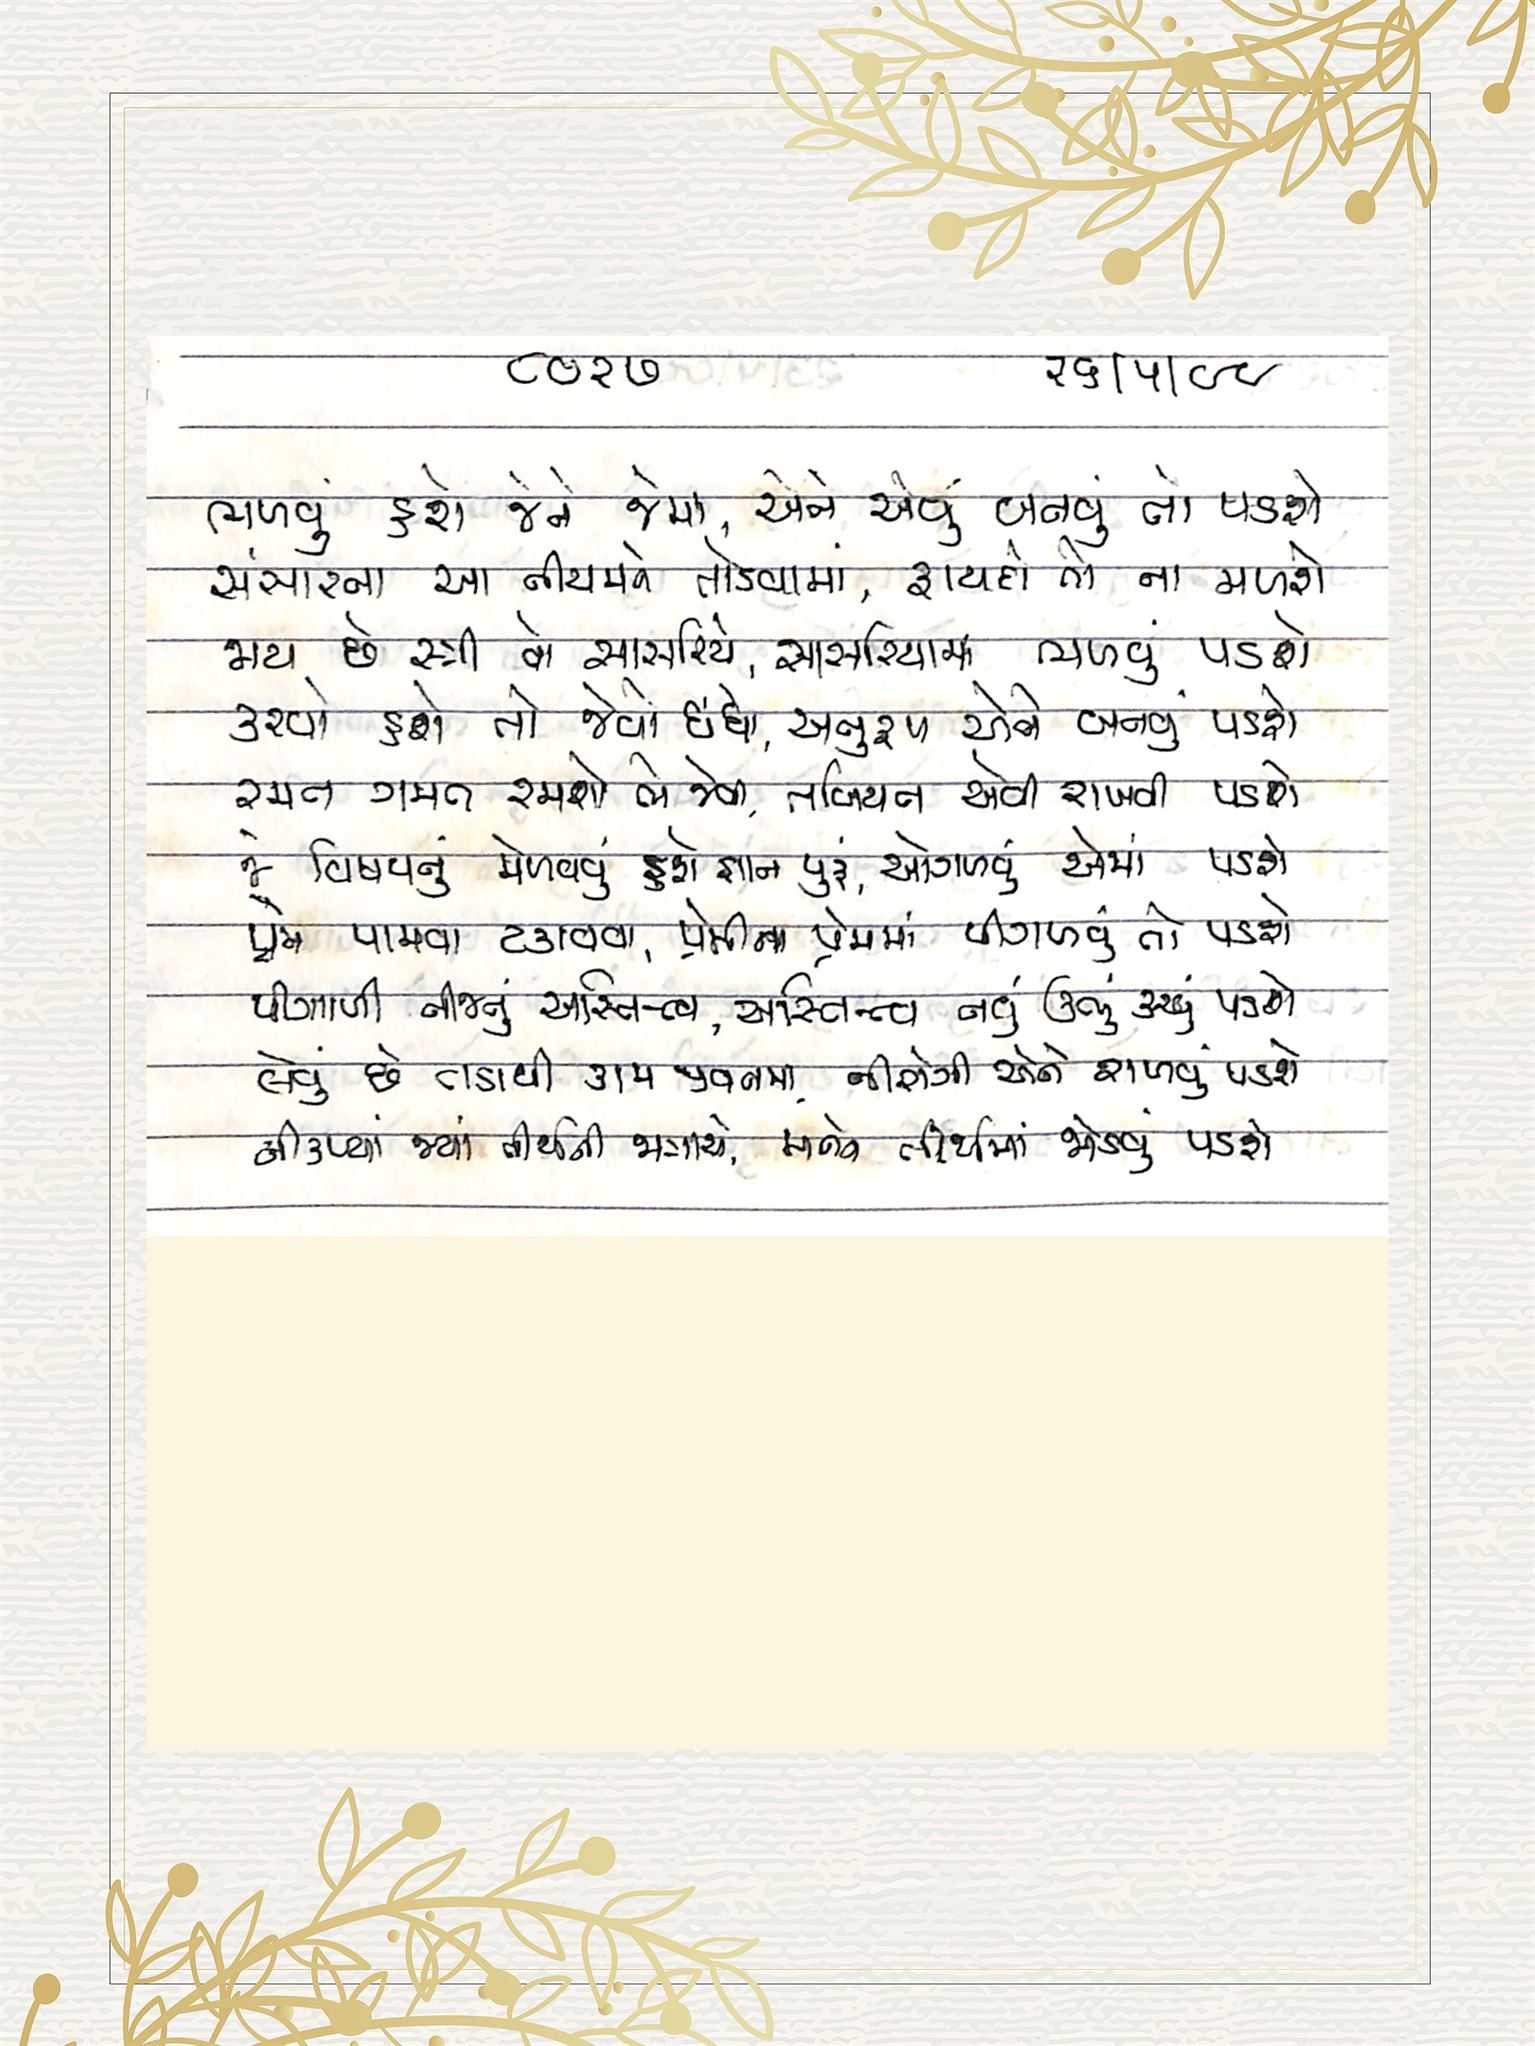 ૮૦૨૭ ૨૬/૫/૯૯
ભળવું હશે જેને જેમાં, એને એવું બનવું તો પડશે
સંસારના આ નીયમને તોડવામાં, ફાયદો તો ના મળશે
ભય છે સ્ત્રી જો સાસરિયે, સાસરિયામાં ભળવું પડશે
કરવો હશે તો જેવો ધંધો, અનુરૂપ એને બનવું પડશે
રમત ગમત રમશો જો જેવી, તબિયત એવી રાખવી પડશે
જે વિષયનું મેળવવું હશે જ્ઞાન પુરૂં, ઓગળવું એમાં પડશે
પ્રેમ પામવા ટકાવવા, પ્રેમીના પ્રેમમાં પીગળવું તો પડશે
પીગાળી નીજનું અસ્તિત્વ, અસ્તિત્વ નવું ઉભું કરવું પડશે
લેવું છે તડાથી કામ જીવનમાં, એને પડશે
નીકળ્યાં જ્યાં તીર્થની જાત્રાએ, મનને તીર્થમાં જોડવું પડશે